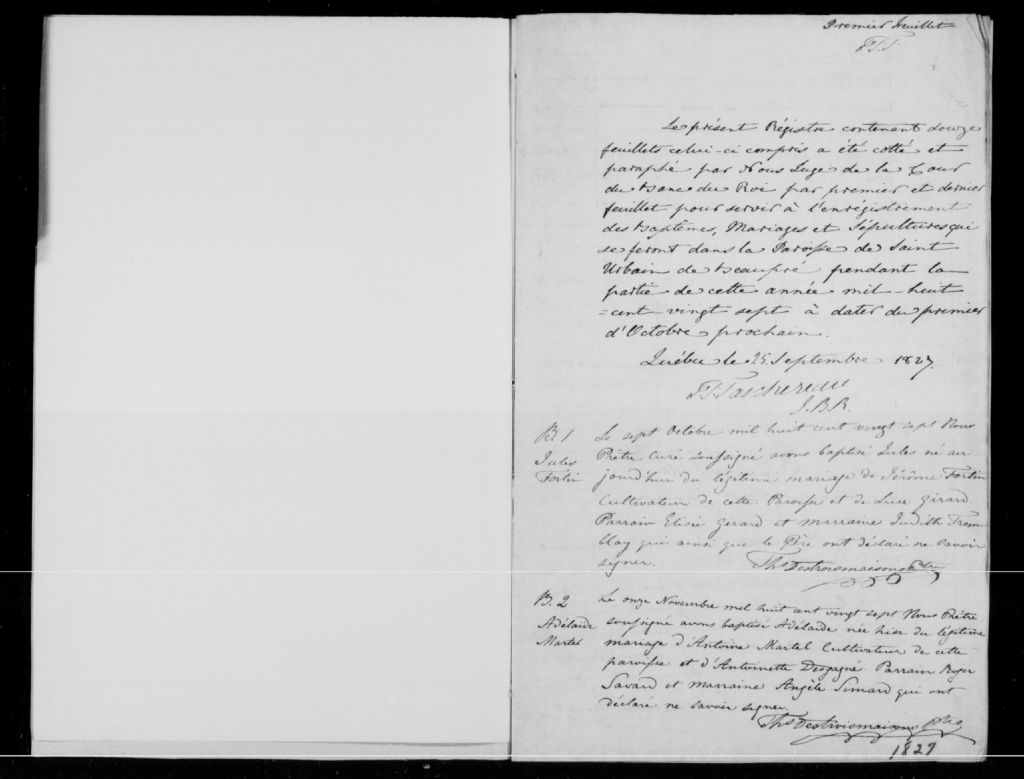 Premier feuillet
T.T.
Le présent Régistre contenant douze
feuillets celui-ci compris a été cotté et
paraphé par Nous Juge de la Cour
du banc du Roi par premier et dernier
feuillet pour servir à l'enrégistrement
des baptêmes, Mariages et Sépultures qui
se feront dans la Paroisse de Saint
Urbain de beaupré pendant la
partie de cette année mil-huit
=cent vingt sept à dater du premier
d'Octobre prochain.
Québec le 25. Septembre 1827.
T.T. Taschereau
J.B.R.
B. 1
Jules
Fortin
Le sept Octobre mil huit cent vingt sept Nous
Prêtre Curé soussigné avons baptisé Jules né au
jourd'hui du légitime mariage de Jérôme Fortin
Cultivateur de cette Paroisse et de Luce Girard.
Parrain Elisée Girard et marraine Judith Trem
blay qui ainsi que le Père ont déclaré ne savoir
signer.
Ths Destroismaisons Ptre
B. 2
Adélaide
Martel
Le onze Novembre mil huit cent vingt sept Nous Prêtre
soussigné avons baptisé Adélaide née hier du légitime
mariage d'Antoine Martel Cultivateur de cette
paroisse et d'Antoinette Desgagné Parrain Roger
Savard et marraine Angèle Simard qui ont
déclaré ne savoir signer.
Ths Destroismaisons Ptre
1827